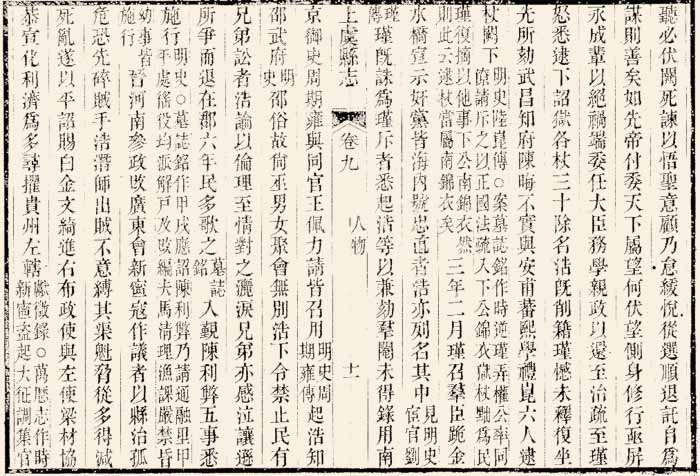 聽必伏闕死諫以悟聖意顧乃怠緩悅從選順退託自爲
謀則善矣如先帝付委天下屬望何伏望側身修行亟屏
永成輩以絕禍端委任大臣務學親政以還至治疏至瑾
怒悉逮下詔獄各杖三十除名浩旣削籍瑾憾未釋復坐
先所劾武昌知府陳晦不實與安甫蕃熙學禮崑六人逮
杖闕下 明史陸崑傳○案墓誌銘作時逆瑾弄權公率同
僚請斥之以正國法疏入下公錦衣獄杖黜爲民
瑾復摘以他事下公南錦衣然
則此云逮杖當屬南錦衣矣 三年二月瑾召羣臣跪金
水橋宣示奸黨皆海內號忠直者浩亦列名其中 見明史
宦官劉
瑾傳 瑾旣誅爲瑾斥者悉起浩等以兼劾羣閹未得錄用南
上虞縣志 卷九 人物 十一
京御史周期雍與同官王佩力請皆召用 明史周
期雍傳 起浩知
邵武府 明
史 邵俗故尙巫男女聚會無別浩下令禁止民有
兄弟訟者浩諭以倫理至情對之灑淚兄弟亦感泣讓遜
所爭而退在郡六年民多歌之 墓誌
銘 入覲陳利弊五事悉
施行 明史○墓誌銘作甲戌應詔陳利弊乃請通融里甲
平處徭役均派解戶改改編夫馬淸理漁課嚴禁昏
幼事皆
施行 晉河南參政改廣東會新寧寇作議者以縣治孤
危恐先碎賊手浩潛師出賊不意縛其渠魁脅從多得減
死亂遂以平詔賜白金文綺進右布政使與左使梁材協
恭宣化利濟爲多尋擢貴州左轄 獻徵錄○萬歷志作時
新寧盜起大征調集官